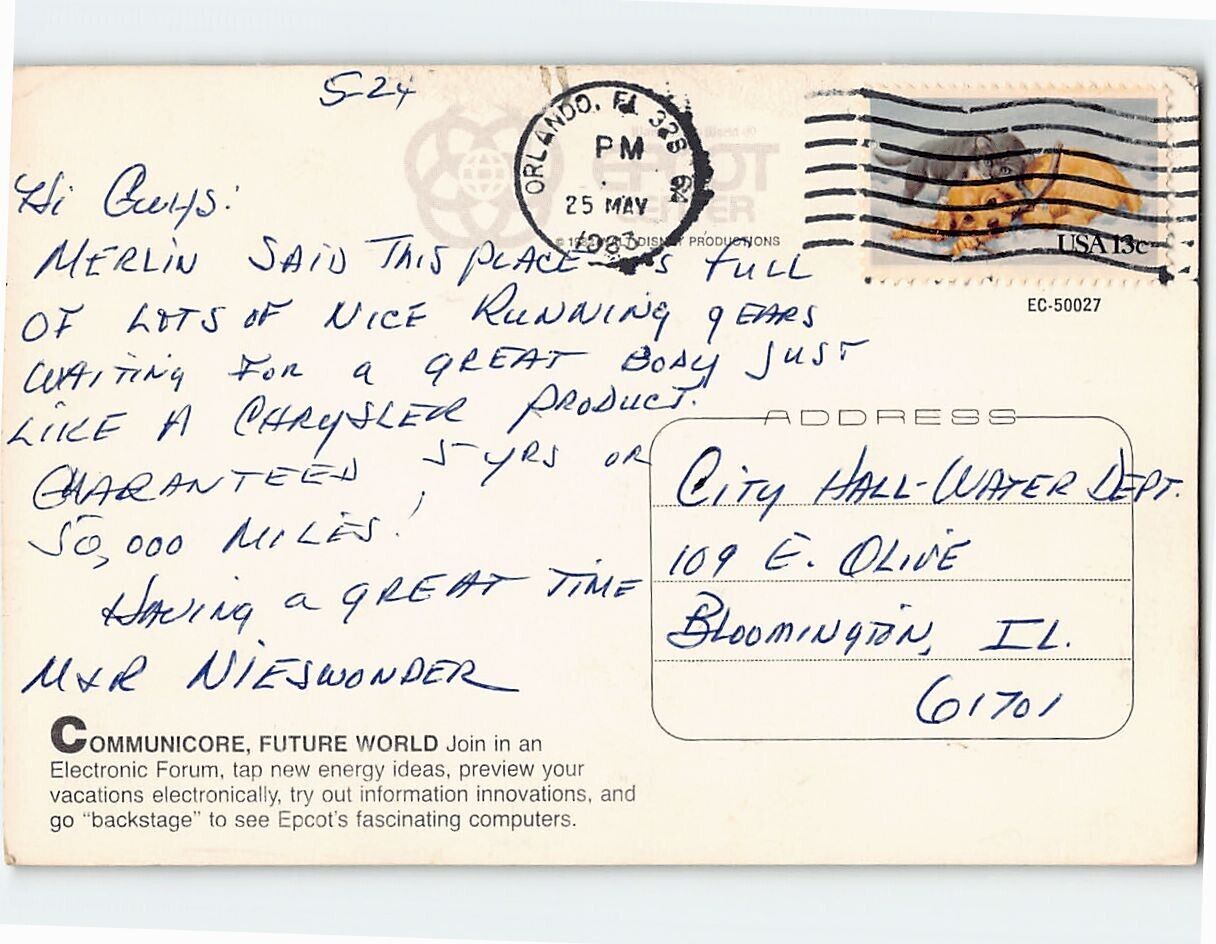 S-24
ORLANDO, FL 328
PM
25 MAY
1983
EPCOT
CENTER
DISNEY PRODUCTIONS
USA 13c
EC-50027
Hi Guys:
MERLIN SAID THIS PLACE IS FULL
OF LOTS OF NICE RUNNING GEARS
WAITING FOR a GREAT BODY JUST
LIKE A CHRYSLER PRODUCT.
GUARANTEED 5 YRS OR
50,000 MILES!
HAVING a GREAT TIME
M&R NIESWONDER
ADDRESS
CITY HALL-WATER DEPT.
109 E. OLIVE
BLOOMINGTON, IL.
61701
COMMUNICORE, FUTURE WORLD Join in an
Electronic Forum, tap new energy ideas, preview your
vacations electronically, try out information innovations, and
go "backstage" to see Epcot's fascinating computers.